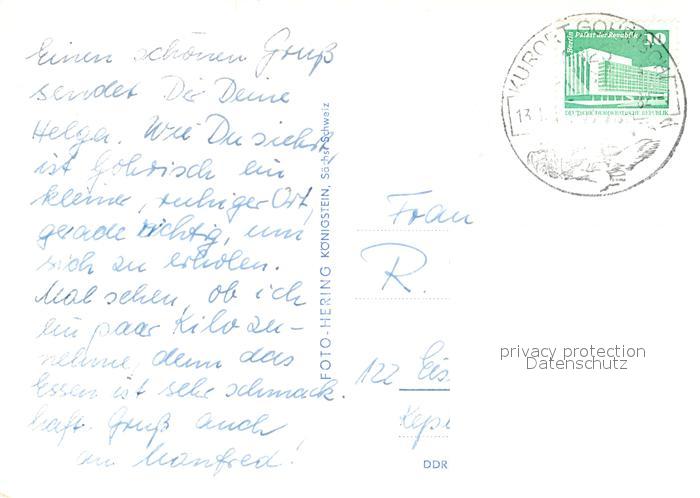 Einen schönen Gruß
sendet Dir Deine
Helga. Wie Du siehst
ist Gohrisch ein
kleiner, ruhiger Ort,
gerade richtig, um
sich zu erholen.
Mal sehen, ob ich
ein paar Kilo zu-
nehme, denn das
Essen ist sehr schmack-
haft. Gruß auch
an Manfred!
FOTO-HERING KÖNIGSTEIN, Sächs. Schweiz
Berlin Palast der Republik 10
DEUTSCHE DEMOKRATISCHE REPUBLIK
KURORT GOHRISCH
13.1
Frau
R.
122 Eis
DDR
privacy protection
Datenschutz